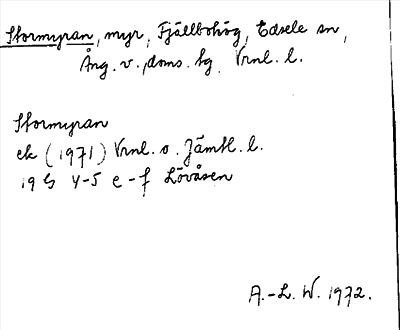 Stormyran, myr, Fjällbohög, Edsele sn,
Ång. v. doms. bg. Vrnl. l.
Stormyran
ek (1971) Vrnl. o. Jämtl. l.
19 G 4-5 e-f Lövåsen
A.-L. W. 1972.